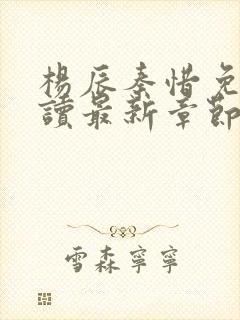 楊辰秦惜免
讀最新章節
雪森寧寧